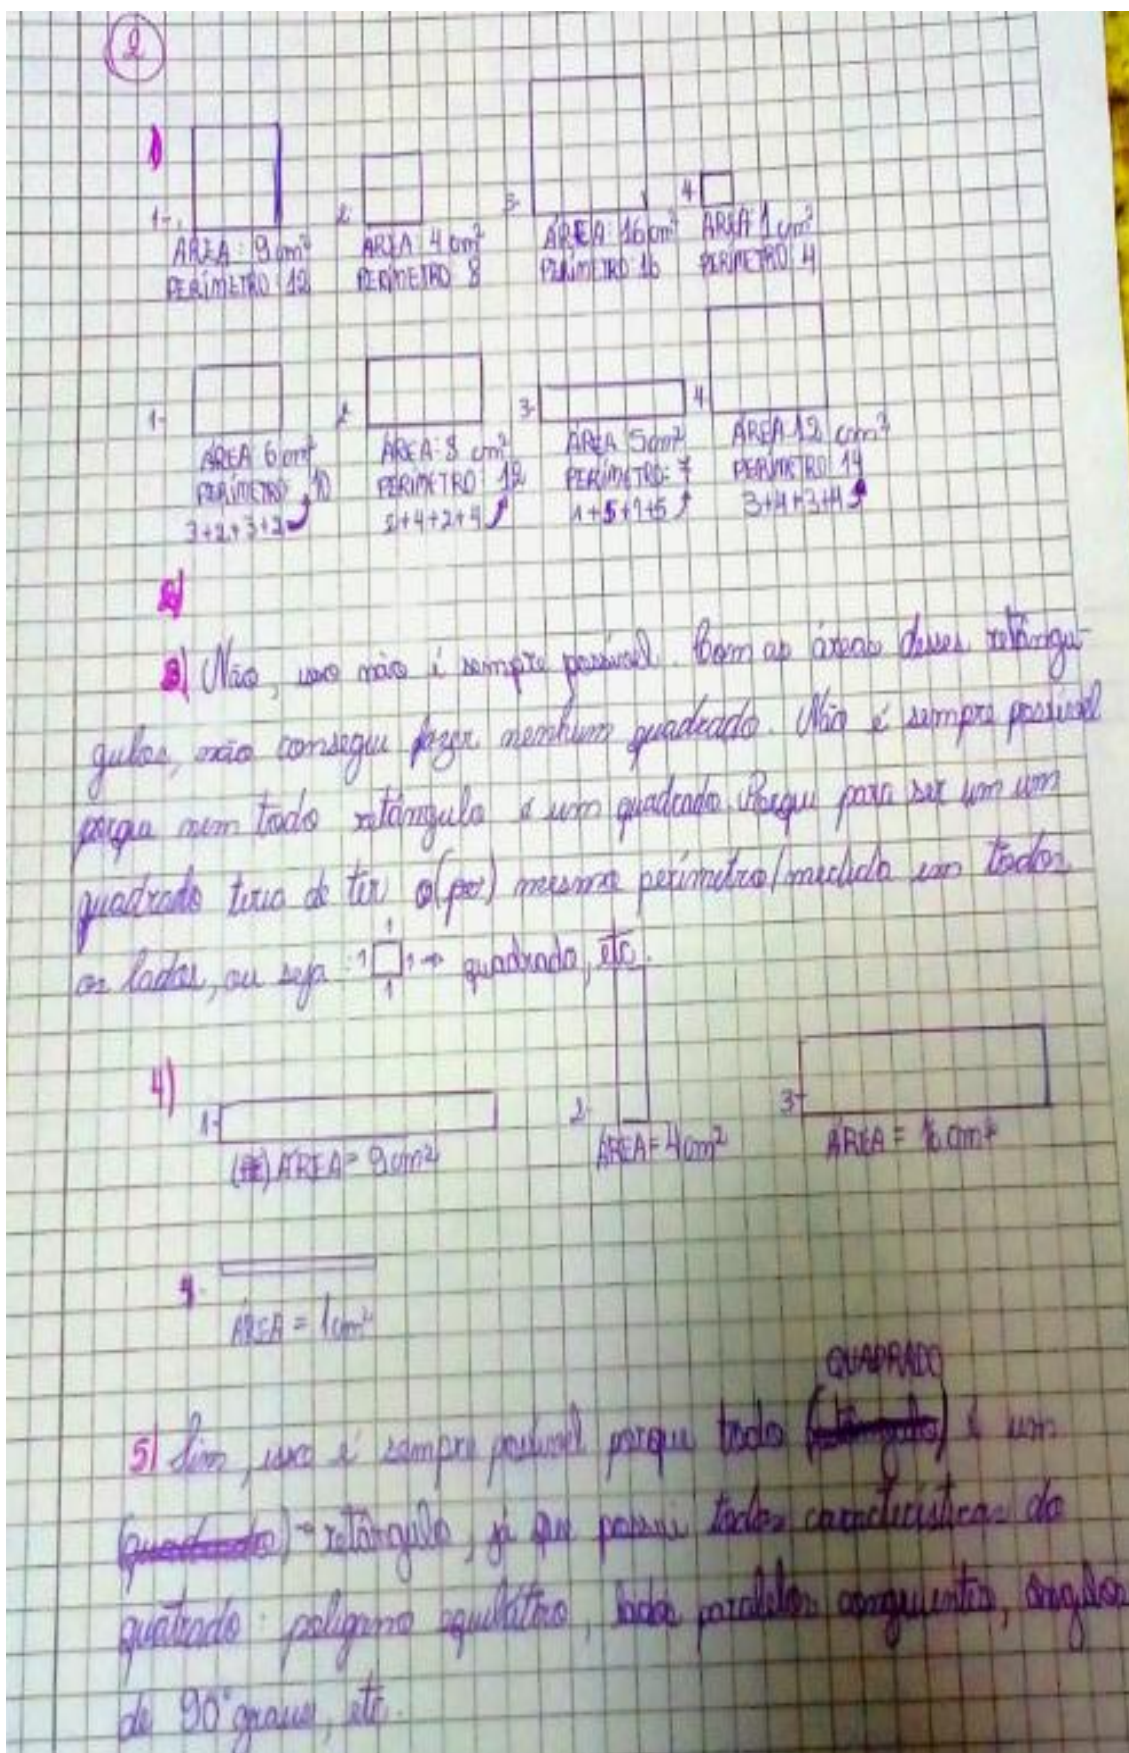 2
1)
1-
2-
3-
4-
ÁREA: 9 cm² ÁREA 4 cm² ÁREA: 16 cm² ÁREA 1 cm²
PERÍMETRO 12 PERÍMETRO 8 PERÍMETRO 16 PERÍMETRO: 4
1-
2-
3-
4-
ÁREA 6 cm² ÁREA: 8 cm² ÁREA 5 cm² ÁREA 12 cm²
PERÍMETRO 10 PERÍMETRO: 12 PERÍMETRO: 7 PERÍMETRO: 14
3+2+3+2 2+4+2+4 1+5+1+5 3+4+3+4
2)
3) Não, isso não é sempre possível. Com as áreas desses retângu-
gulos, não consegui fazer nenhum quadrado. Não é sempre possível
porque nem todo retângulo é um quadrado. Porque para ser um um
quadrado teria de ter o mesmo perímetro/medida em todos
os lados, ou seja: 1 1 1 1 → quadrado, etc.
4)
1-
2-
3-
ÁREA = 9 cm² ÁREA = 4 cm² ÁREA = 16 cm²
4-
ÁREA = 1 cm²
QUADRADO
5) Sim, isso é sempre possível porque todo (retângulo) é um
(quadrado) → retângulo, já que possui todas características do
quatrado: polígono equilátero, lados paralelos congruentes, ângulos
de 90° graus, etc.